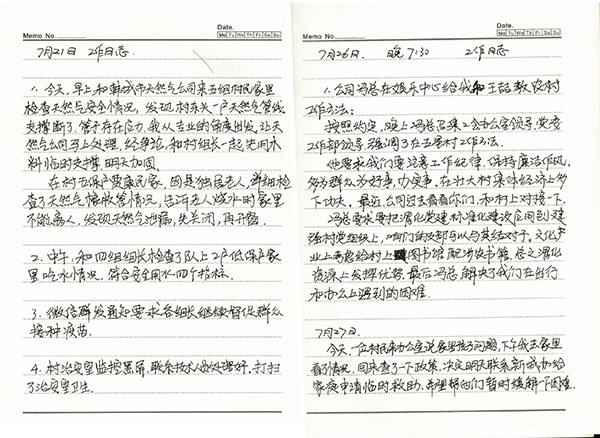 Memo No.
Date.
Mo Tu We Th Fr Sa Su
7月21日 工作日志
1. 今天,早上和韩城市天然气公司来五组村民家里
检查天然气安全情况,发现村东头一户天然气管线
支撑断了,管子存在应力,我从专业的角度出发,让天
然气公司马上处理,经争论,和村组长一起先用水
料临时支撑,明天加固。
在村五保户贾康民家,因是独居老人,详细检
查了天然气橡胶管情况,告诉老人烧水时家里
不能离人,发现天然气泄漏,先关闭,再开窗。
2. 中午,和四组组长检查了队上2户低保户家
里吃水情况,符合安全用水四个指标。
3. 微信群发通知要求各组长继续督促群众
接种疫苗。
4. 村治安室监控黑屏,联系技术人员处理好,打扫
了治安室卫生。
Memo No.
Date.
Mo Tu We Th Fr Sa Su
7月26日 晚7:30 工作日志
1. 公司冯总在娱乐中心给我和王喆教农村
工作方法:
按照约定,晚上冯总召集了公办室领导,党委
工作部领导强调了在五星村工作方法。
他要求我们要注意工作纪律,保持廉洁作风,
多为群众办好事,办实事,在壮大村集体经济上多
下功夫。最近公司过去看看你们,和村上对接一下。
冯总要求要把渭化党建标准化建设应用到建
强村党组织上,咱们的支部可以与其结对子。文化产
业上考虑给村上图书馆配涉农书籍,总之渭化
资源上发挥优势,最后冯总解决了我们在出行
和办公上遇到的困难。
7月27日。
今天,一位村民来办公室说家里孩子问题,下午我去家里
看了情况,回来查了一下政策,决定明天联系新城办给
家庭申请临时救助,希望帮他们暂时缓解一下困难。